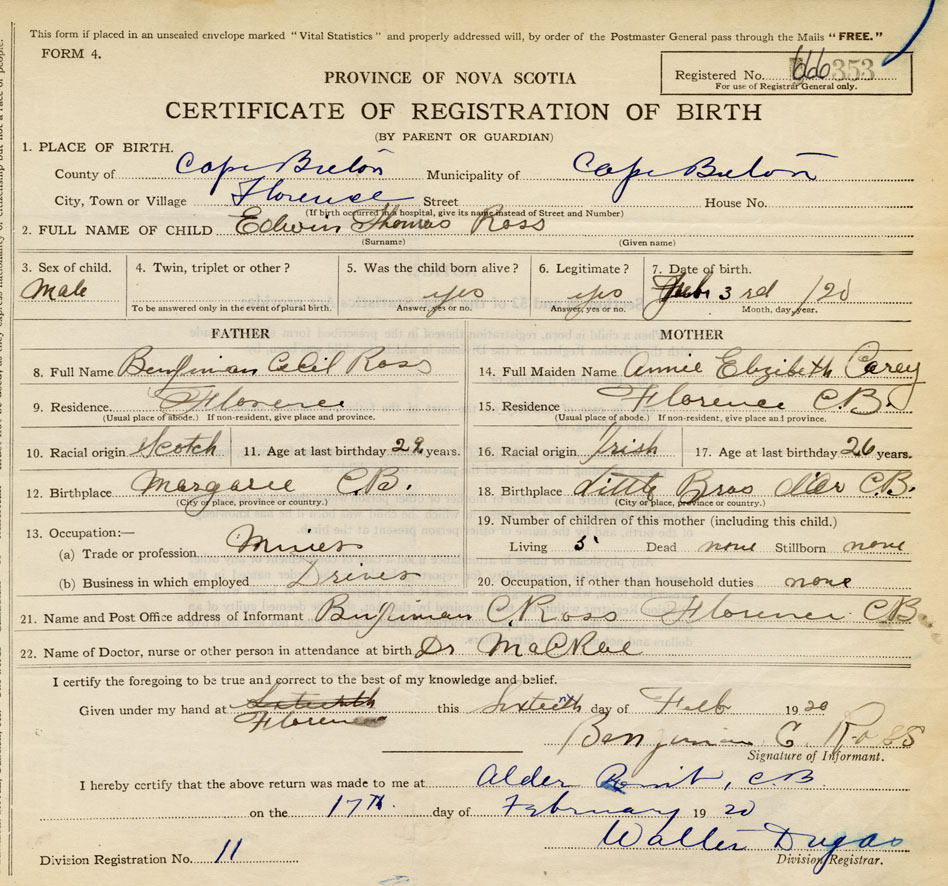 This form if placed in an unsealed envelope marked "Vital Statistics" and properly addressed will, by order of the Postmaster General pass through the Mails "FREE."
FORM 4.
PROVINCE OF NOVA SCOTIA
Registered No. 353
For use of Registrar General only.
CERTIFICATE OF REGISTRATION OF BIRTH
(BY PARENT OR GUARDIAN)
1. PLACE OF BIRTH.
County of Cape Breton Municipality of Cape Breton
City, Town or Village Florence Street House No.
(If birth occurred in a hospital, give its name instead of Street and Number)
2. FULL NAME OF CHILD Edwin Thomas Ross
(Surname) (Given name)
3. Sex of child. 4. Twin, triplet or other? 5. Was the child born alive? 6. Legitimate? 7. Date of birth.
Male yes yes Feb 3rd /20
To be answered only in the event of plural birth. Answer, yes or no. Answer, yes or no. Month, day, year.
FATHER MOTHER
8. Full Name Benjiman Cecil Ross 14. Full Maiden Name Annie Elizibeth Carey
9. Residence. Florence 15. Residence Florence C.B.
(Usual place of abode.) If non-resident, give place and province. (Usual place of abode.) If non-resident, give place and province.
10. Racial origin Scotch 11. Age at last birthday 29 years. 16. Racial origin Irish 17. Age at last birthday 26 years.
12. Birthplace Margaree C.B. 18. Birthplace Little Bras d'Or C.B.
(City or place, province or country.) (City or place, province or country.)
13. Occupation:— 19. Number of children of this mother (including this child.)
(a) Trade or profession Miner Living 5 Dead none Stillborn none
(b) Business in which employed Driver 20. Occupation, if other than household duties none
21. Name and Post Office address of Informant Benjiman C. Ross Florence C.B.
22. Name of Doctor, nurse or other person in attendance at birth Dr MacRae
I certify the foregoing to be true and correct to the best of my knowledge and belief.
Given under my hand at Florence this Sixteith day of Feb 1920
Benjiman C. Ross
Signature of Informant.
I hereby certify that the above return was made to me at Alder Point, C.B.
on the 17th. day of February 1920
Walter Dugas
Division Registrar.
Division Registration No. 11